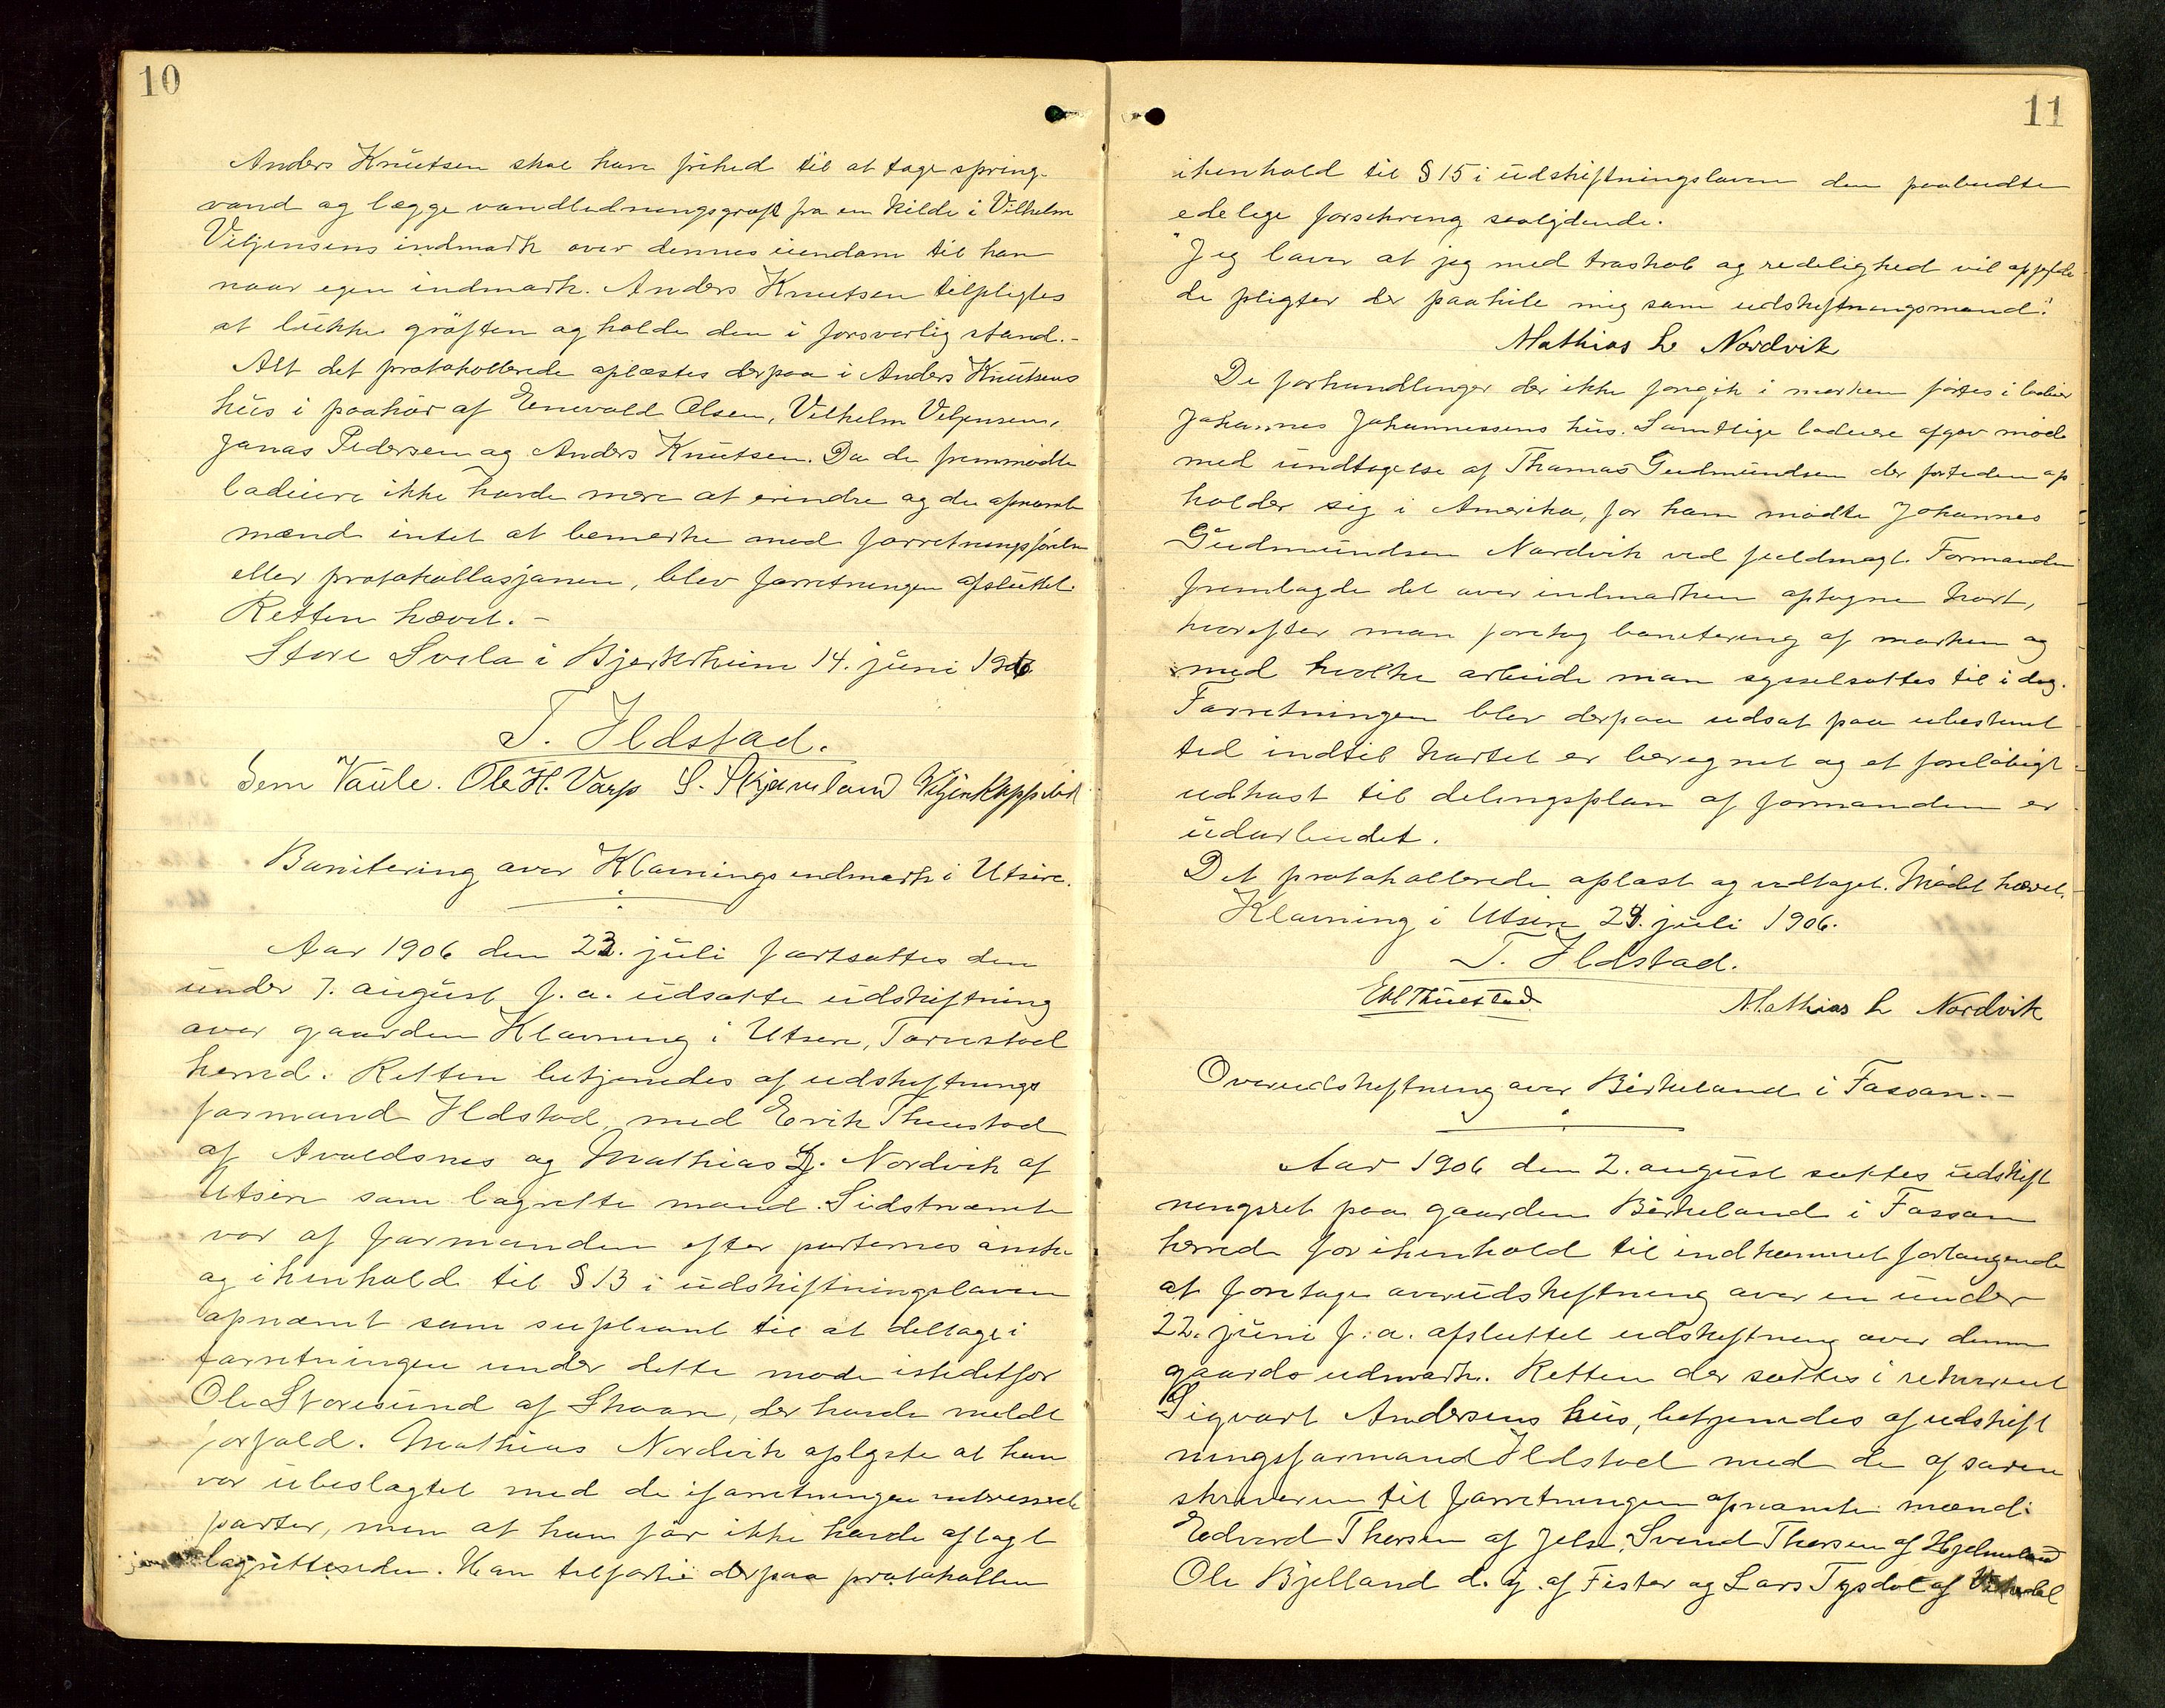 10
Anders Knutsen skal have frihed til at tage spring-
vand og lægge vandledningsgrøft fra en kilde i Vilhelm
Veljensens indmark over dennes eiendom til han
naar egen indmark. Anders Knutsen tilpligtes
at lukke grøften og holde den i forsvarlig stand.-
Alt det protokollerede oplæstes derpaa i Anders Knutsens
hus i paahør af Enevald Olsen, Vilhelm Veljensen,
Jonas Pedersen og Anders Knutsen. Da de fremmødte
lodeiere ikke havde mere at erindre og de opnævnte
mænd intet at bemerke mod forretningsførelsen
eller protokollasjonen, blev forretningen afsluttet.
Retten hævet. -
Store Svela i Bjerkreim 14. juni 1906
T. Ildstad.
Sem Vaule. Ole H. Varp S. Skjæveland
Bonitering over Klovnings indmark i Utsire.
Aar 1906 den 23. juli fortsattes den
under 7. august f. a. udsatte udskiftning
over gaarden Klovning i Utsire, Torvestad
herred. Retten betjenedes af udskiftnings
formand Ildstad med Erik Thuestad
af Avaldsnes og Mathias L. Nordvik af
Utsire som lagrette mænd. Sidstnævnte
var af formanden efter parternes ønske
og i henhold til § 13 i udskiftningsloven
opnævnt som supleant til at deltage i
forretningen under dette møde istedetfor
Ole Storesund af Skaare, der havde meldt
forfald. Mathias Nordvik oplyste at han
var ubeslægtet med de i forretningen interesserede
parter, men at han før ikke havde aflagt
lagretteseden. Han tilførte derpaa protokollen
11
ihenhold til § 15 i udskiftningsloven den paabudte
edelige forsikring saalydende.
"Jeg lover at jeg med troskab og redelighed vil opfylde
de pligter der paahvile mig som udskiftningsmand."
Mathias L Nordvik
De forhandlinger der ikke foregik i marken førtes i lodeier
Johannes Johannessens hus. Samtlige lodeiere afgav møde
med undtagelse af Thomas Gudmundsen der fortiden op
holder sig i Amerika, for ham mødte Johannes
Gudmundsen Nordvik ved fuldmagt. Formanden
fremlagde det over indmarken optagne kart,
hvorefter man foretog bonitering af marken og
med hvilke arbeide man sysselsattes til i dag.
Forretningen blev derpaa udsat paa ubestemt
tid indtil kartet er beregnet og et foreløbigt
udkast til delingsplan af formanden er
udarbeidet.
Det protokollerede oplæst og vedtaget. Mødet hævet.
Klovning i Utsire 24. juli 1906.
T. Ildstad.
E. Thuestad. Mathias L Nordvik
Overudskiftning over Birkeland i Fossan.-
Aar 1906 den 2. august sattes udskift
ningsret paa gaarden Birkeland i Fossan
herred for ihenhold til indkommet forlangende
at foretage overudskiftning over en under
22. juni f. a. afsluttet udskiftning over denne
gaards udmark. Retten der sattes i rekvirent
Sigvart Andersens hus, betjenedes af udskift
ningsformand Ildstad med de af soren
skriveren til forretningen opnævnte mænd:
Edvard Thorsen af Jelse, Svend Thorsen af Hjelmeland
Ole Bjelland d. y. af Fister og Lars Tysdal af